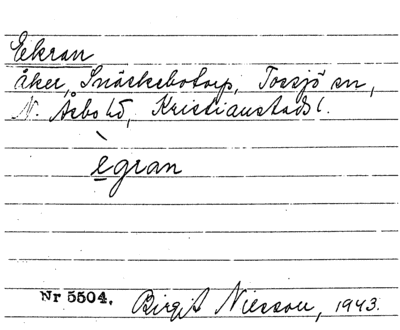 Eekran
åker, Snäckebotorp, Tossjö sn,
N. Åsbo hd, Kristianstads l.
è̱gran
Nr 5504. Birgit Nilsson, 1943.